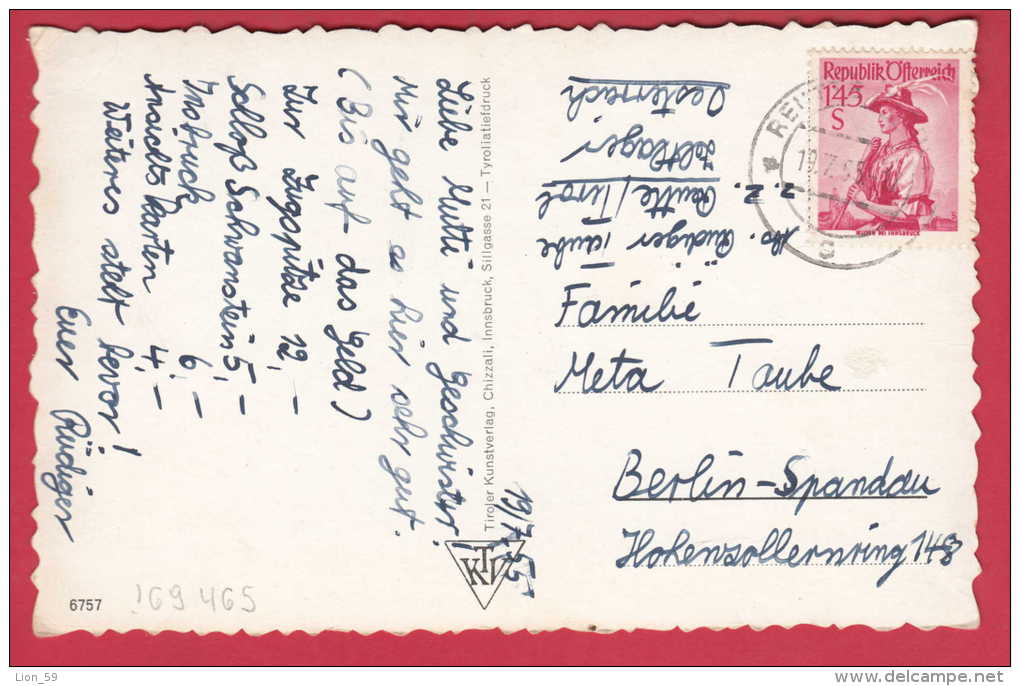 Liebe Mutti und Geschwister!
Mir geht es hier sehr gut.
(Bis auf das Geld)
Zur Zugspitze 12,-
Schloß Schwanstein 5,-
Insbruck 6,-
Ansichtskarten 4,-
Weiteres steht bevor!
Euer Rüdiger
19/7.55
Tiroler Kunstverlag, Chizzali, Innsbruck, Sillgasse 21 — Tyroliatiefdruck
KTV
Abs. Rüdiger Taube
z. Z.
Reutte/Tirol
Zeltlager
Oesterreich
Republik Österreich
1'45
S
19.7.55
Familie
Meta Taube
Berlin-Spandau
Hohenzollernring 148
6757
169 465
Lion_59
www.delcampe.net